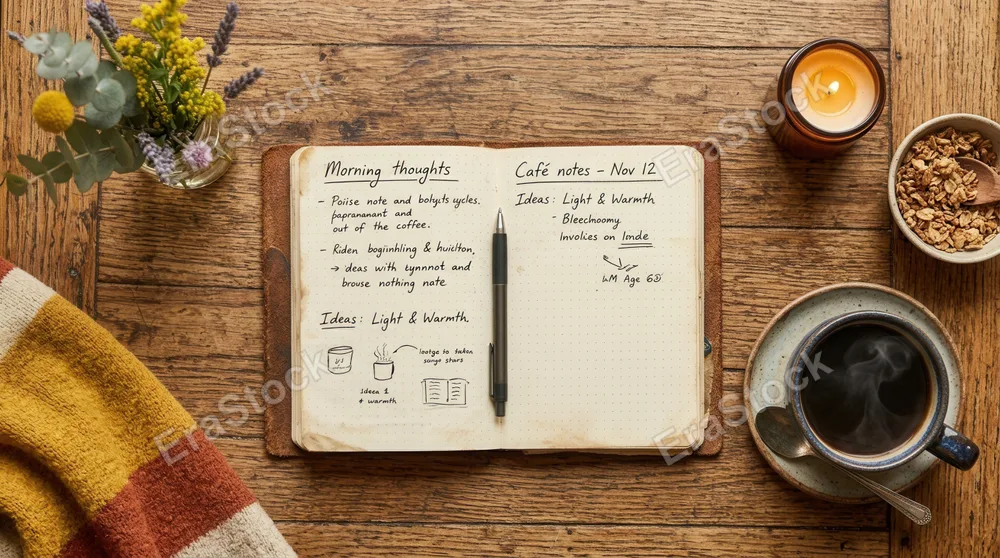 Morning thoughts
- Poiise note and bolycts cycles.
papranarant and
out of the coffee.
- Riden boginhling & huiction,
→ deas with tynnnot and
brouse nothing nate
Ideas: Light & Warmth.
loatge to takan
sange stars
Ideen 1
& warmth
Café notes – Nov 12
Ideas: Light & Warmth
- Bleechoomy
Involies on lnde
LM Age 60
EraStock
EraStock
EraStock
EraStock
EraStock
EraStock
EraStock